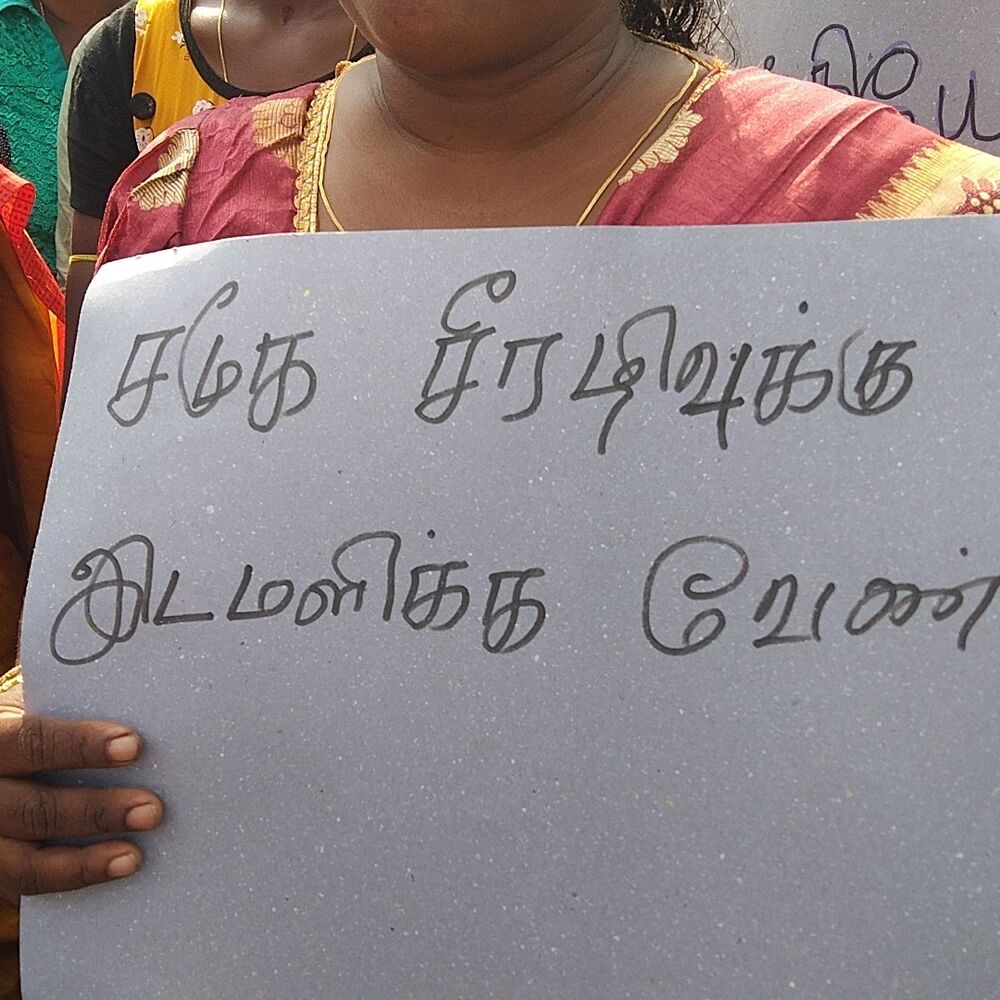 சமூக சீரழிவுக்கு
இடமளிக்க வேண்